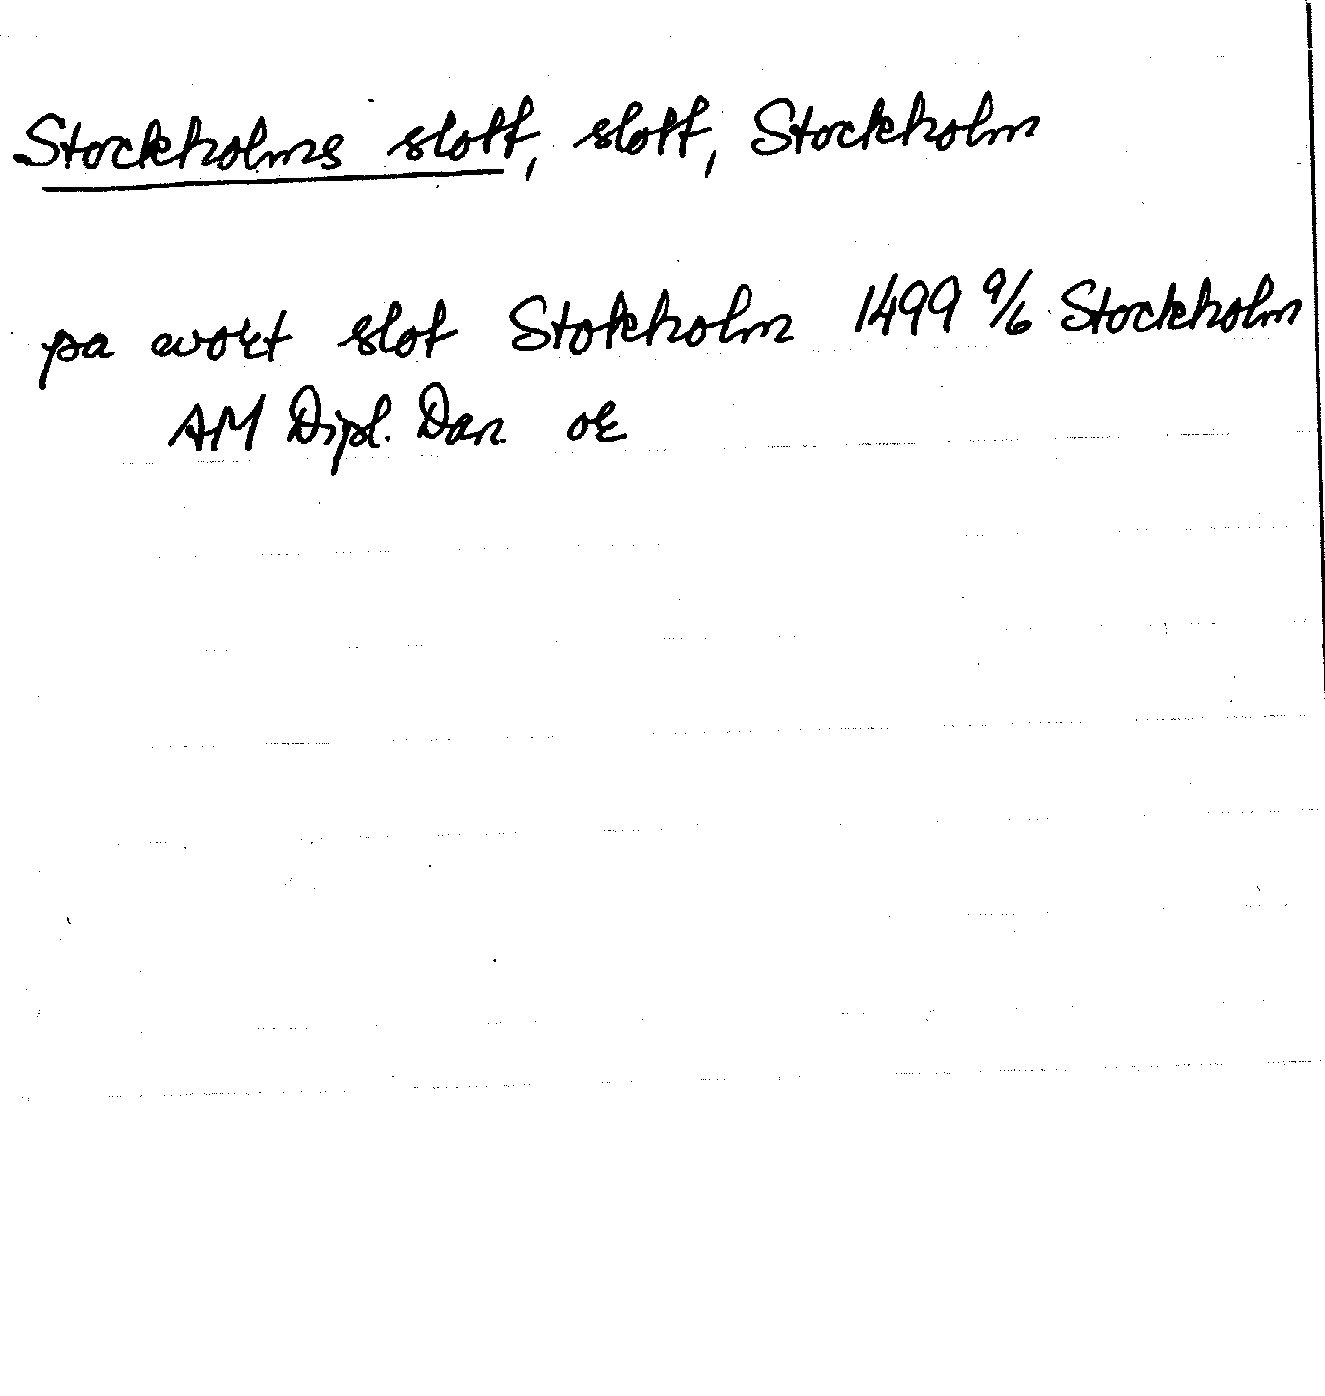 Stockholms slott, slott, Stockholm
pa wort slot Stokholm 1499 9/6 Stockholm
AM Dipl. Dan. ok